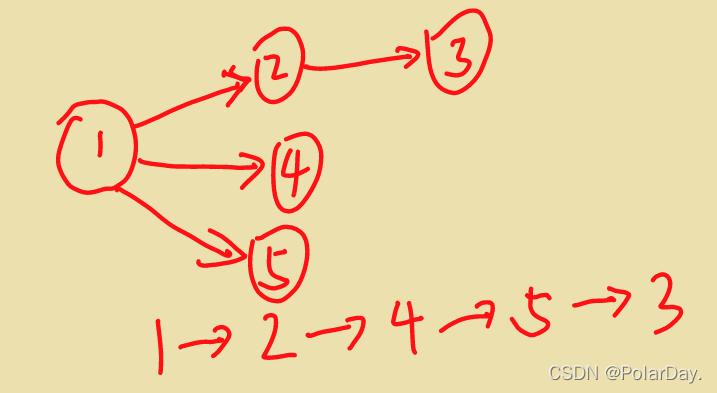 2 3
1
4
5
1 → 2 → 4 → 5 → 3
CSDN @PolarDay.